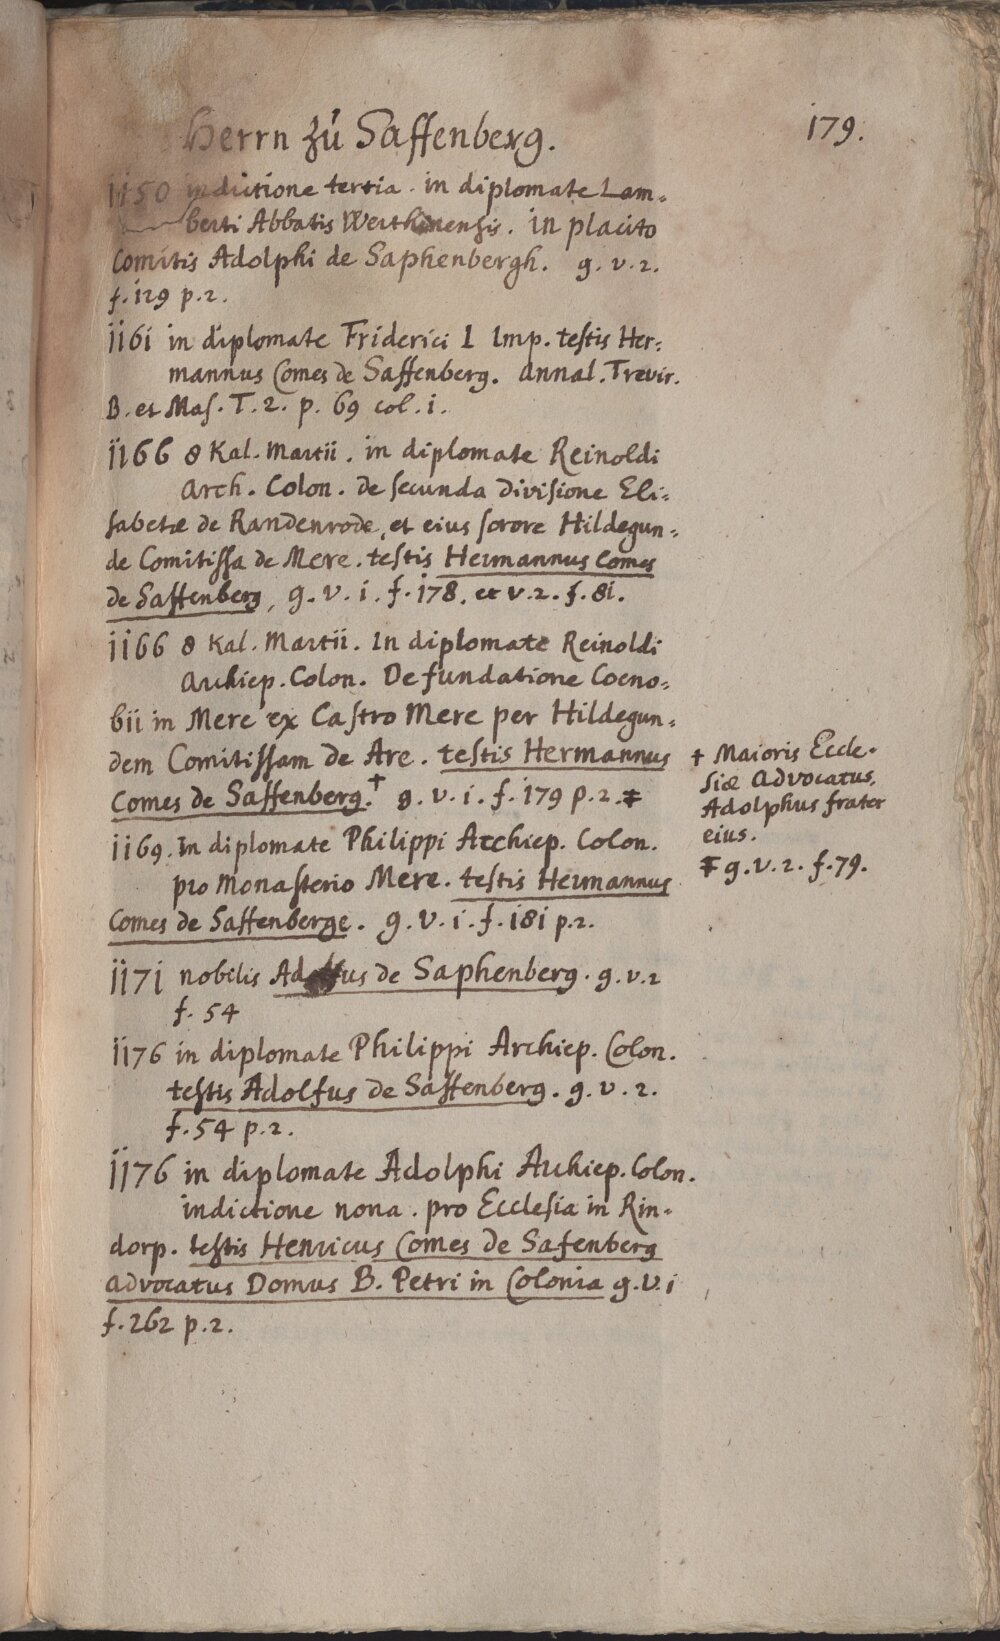 179.
Herrn zú Saffenberg.
1150 indictione tertia. in diplomate Lam-
berti Abbatis Werthinensis. in placito
Comitis Adolphi de Saphenbergh. g. v. 2.
f. 129 p. 2.
1161 in diplomate Friderici I Imp. testis Her-
mannus Comes de Saffenberg. Annal. Trevir.
B. et Mas. T. 2. p. 69 col. 1.
1166 8 Kal. Martii. in diplomate Reinoldi
Arch. Colon. de secunda divisione Eli-
sabetæ de Randenrode, et eius sorore Hildegun-
de Comitissa de Mere. testis Hermannus Comes
de Saffenberg, g. v. 1. f. 178. et v. 2. f. 81.
1166 8 Kal. Martii. In diplomate Reinoldi
Archiep. Colon. De fundatione Coeno-
bii in Mere ex Castro Mere per Hildegun-
dem Comitissam de Are. testis Hermannus
Comes de Saffenberg.† g. v. 1. f. 179 p. 2. ‡
1169. In diplomate Philippi Archiep. Colon.
pro Monasterio Mere. testis Hermannus
Comes de Saffenberge. g. v. 1. f. 181 p. 2.
1171 nobilis Adolfus de Saphenberg. g. v. 2
f. 54
1176 in diplomate Philippi Archiep. Colon.
testis Adolfus de Saffenberg. g. v. 2.
f. 54 p. 2.
1176 in diplomate Adolphi Archiep. Colon.
indictione nona. pro Ecclesia in Rin-
dorp. testis Henricus Comes de Safenberg
Advocatus Domus B. Petri in Colonia g. v. 1
f. 262 p. 2.
† Maioris Eccle-
siæ Advocatus.
Adolphus frater
eius.
‡ g. v. 2. f. 79.